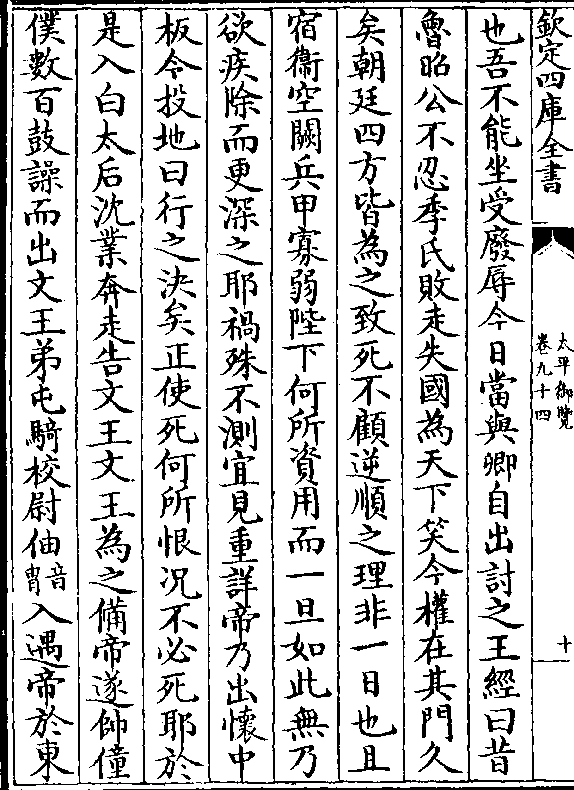 欽定四庫全書
太平御覽
卷九十四
十
也吾不能坐受廢辱今日當與卿自出討之王經曰昔
魯昭公不忍季氏敗走失國為天下笑今權在其門久
矣朝廷四方皆為之致死不顧逆順之理非一日也且
宿衞空闕兵甲寡弱陛下何所資用而一旦如此無乃
欲疾除而更深之耶禍殊不測宜見重詳帝乃出懷中
板令投地曰行之決矣正使死何所恨况不必死耶於
是入白太后沈業奔走告文王文王為之備帝遂帥僮
僕數百鼓譟而出文王弟屯騎校尉伷音胄入遇帝於東